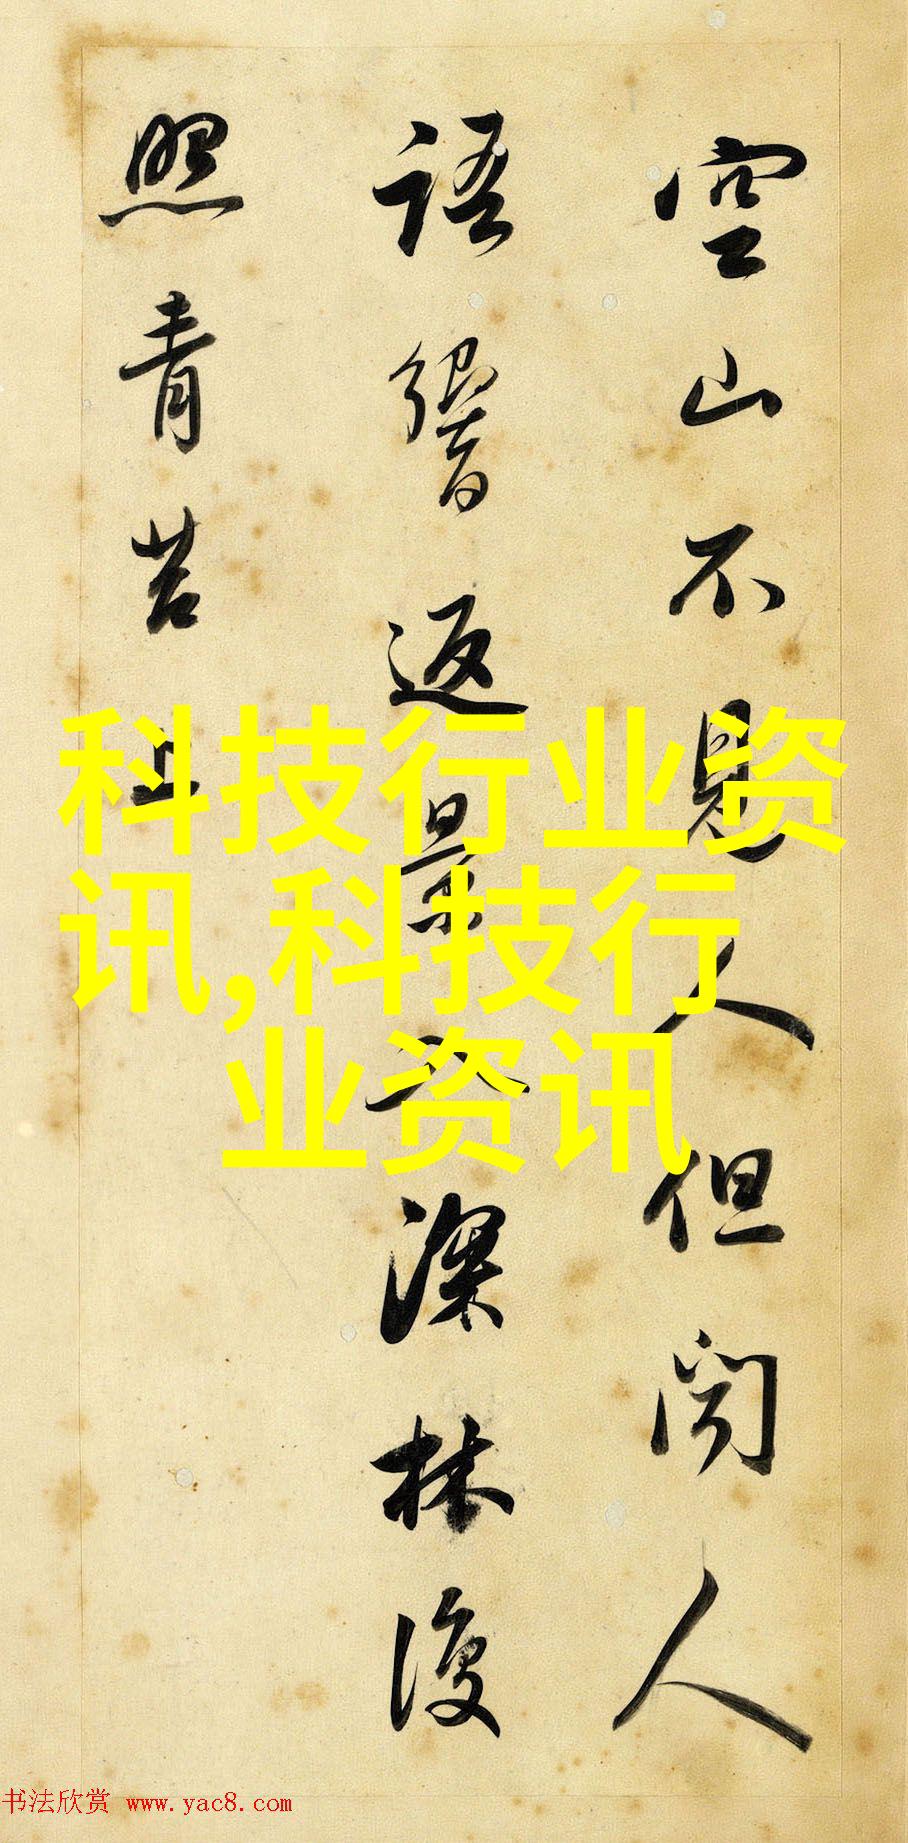 空山不見人但闻人
語響返景入深林復
照青苔上
科技行业资
讯,科技行
业资讯
书法欣赏 www.yac8.com